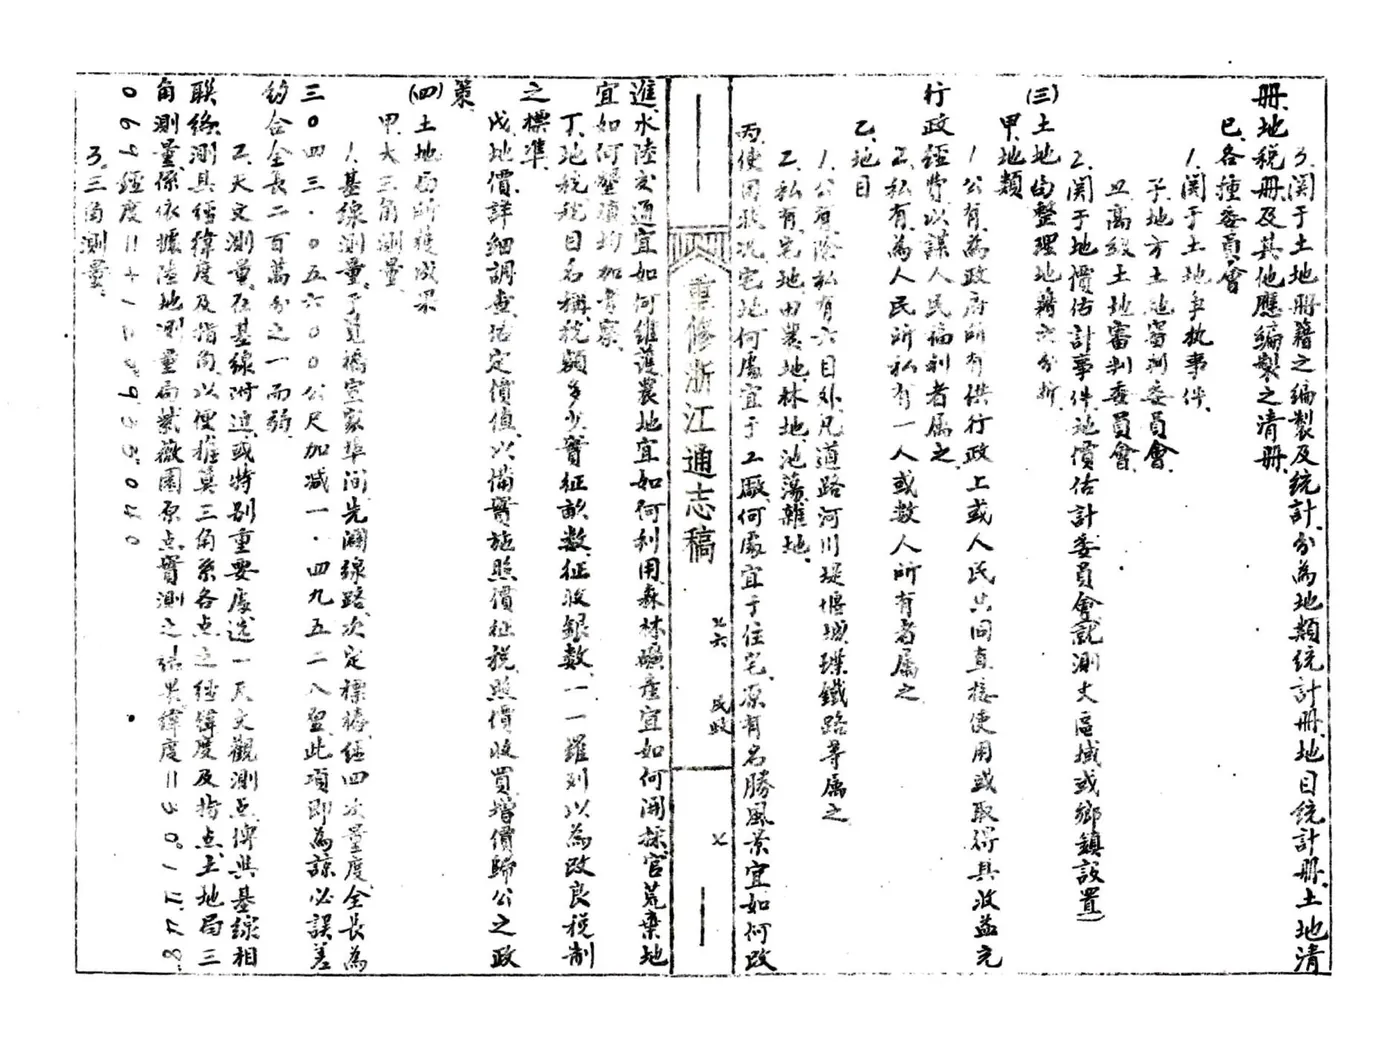 3.関于土地册籍之编製及統計,分為地類統計册,地目統計册,土地清
册,地税册及其他應編製之清册。
巳、各種委員會
1.関于土地爭执事件。
子、地方土地審判委員會。
丑、高級土地審判委員會。
2.関于地價估計事件,地價估計委員會(就測丈區域或鄉鎮設置)
(三)土地局整理地籍之分析
甲、地類
1.公有,為政府所有供行政上或人民共同直接使用或取得其收益充
行政經費以謀人民福利者屬之。
2.私有,為人民所私有,一人或数人所有者属之。
乙、地目
1.公有,除私有六目外,凡道路河川堤堰城璞鐵路等属之。
2.私有,宅地,田,農地,林地,池蕩,雜地。
丙、使用狀况,宅地何處宜于工廠,何處宜于住宅,原有名勝風景宜如何改
重修浙江通志稿
民政
進,水陸交通宜如何維護,農地宜如何利用,森林礦產宜如何開採,官荒棄地
宜如何墾殖,均加考察。
丁、地税,税目名稱,税額多少,實征畝数,征收銀数,一一羅列,以為改良税制
之標準。
戊、地價,詳細調查,估定價值,以備實施照價征税,照價收買,增價歸公之政
策。
(四)土地局所獲成果
甲、大三角測量。
1.基線測量,于筧橋宣家埠间,先闢線路,次定標樁,經四次量度,全長為
三〇四三.〇五六〇〇公尺加减一.四九五二八㕑,此項即為諒必誤差
約合全長二百萬分之一而弱。
2.天文測量,在基線附近或特别重要處,选一天文觀測点,俾與基線相
聯絡,測其經緯度及指角,以便推算三角系各点之經緯度及指点,土地局三
角測量,係依據陸地測量局紫薇園原点實測之結果,緯度=
經度=
3.三角測量。